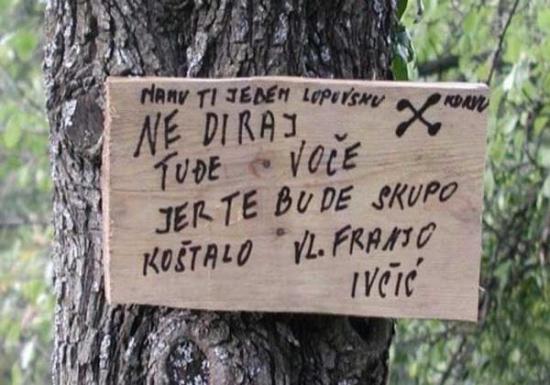 MAMU TI JEBEM LOPOVSKU KURVU
NE DIRAJ
TUĐE VOČE
JER TE BUDE SKUPO
KOŠTALO VL. FRANJO
IVČIĆ